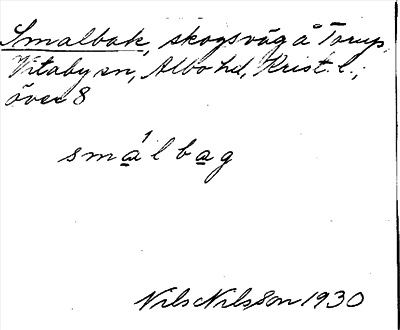 Smalbak, skogsväg å Torup,
Vitaby sn, Albo hd, Krist. l.;
över 8
smá̱lba̱g
Nils Nilsson 1930